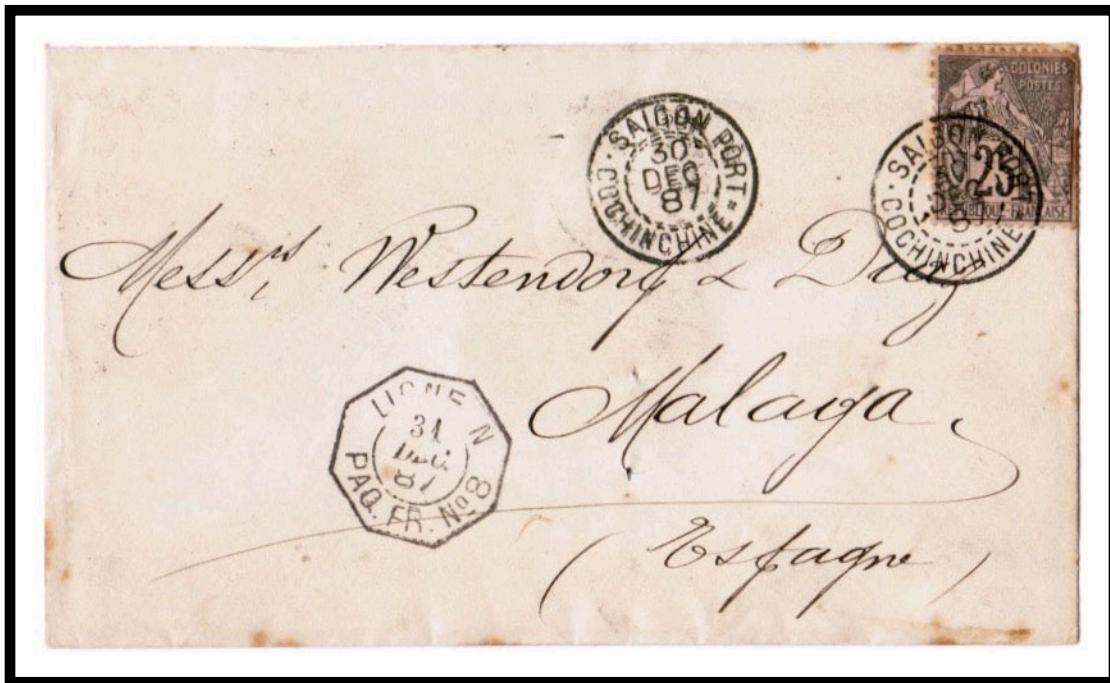 COLONIES
POSTES
25
REPUBLIQUE FRANÇAISE
SAIGON PORT
30
DEC
87
COCHINCHINE
SAIGON PORT
COCHINCHINE
Messrs, Westendorp & Diaz
Malaga,
LIGNE N
31
DEC.
87
PAQ. FR. No 8
(Espagne)